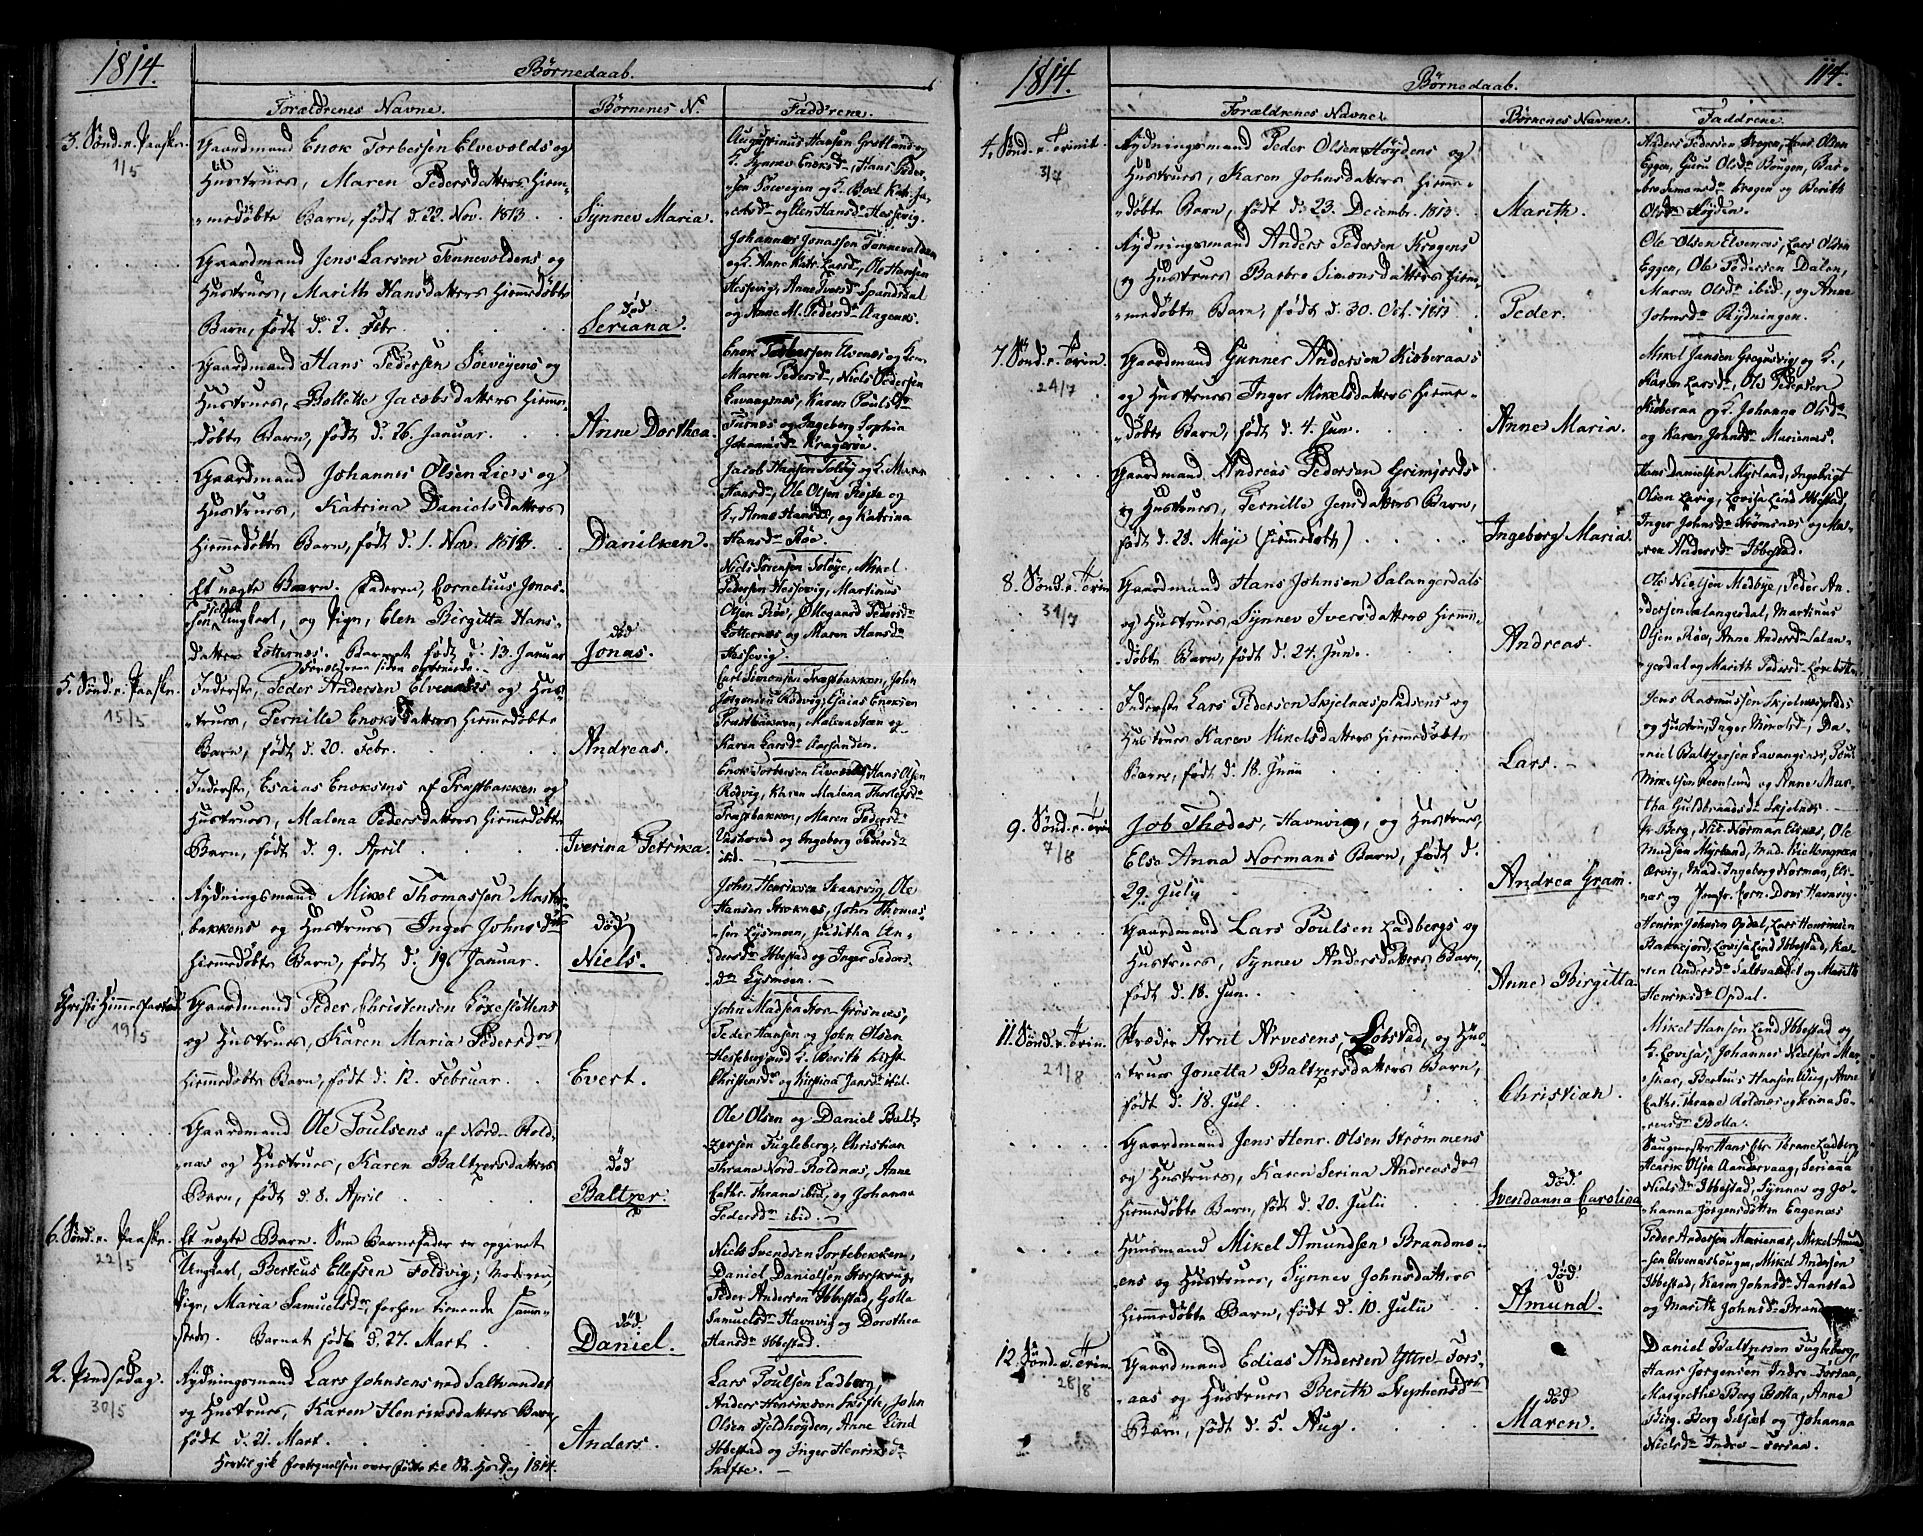 1814.
Børnedaab.
Forældrenes Navne.
Børnenes N.
Faddrene.
3. Sønd. e. Paaske.
1/5
Gaardmand Enok Torbersen Elvevolds og
Hustrues, Maren Pedersdatters hiem-
medøbte Barn, født d. 22. Nov. 1813.
Synnev Maria.
Augustinus Hansen Grotland og
H. Synnev Enoksdr, Hans Peder-
sen Søevegen og H. Boel Katr. Ja-
cobsdr og Elen Hansdr Hessevig.
Gaardmand Jens Larsen Tennevoldens og
Hustrues, Marith Hansdatters hiemmedøbte
Barn, født d. 2. Febr.
død
Seriana.
Johannes Jonassen Tennevolden
og H. Anne Katr. Larsdr, Ole Hansen
Hessevig, Anne Iversdr Spansdal
og Anne M. Pedersdr Aagenes.
Gaardmand Hans Pedersen Søeveyens og
Hustrues, Bollette Jacobsdatters hiemme-
døbte Barn, født d. 26. Januar.
Anne Dorthea.
Enok Torbersen Elvenes og H.
Maren Pedersdr, Niels Pedersen
Lavangsnes, Karen Poulsdr
Furnes og Ingeborg Sophia
Johannisdr Kragerøe.
Gaardmand Johannes Olsen Lies og
Hustrues, Katrina Danielsdatters
hiemmedøbte Barn, født d. 1. Nov. 1813.
Danilken.
Jacob Hansen Foldvig og H. Maren
Hansdr, Ole Olsen Røe og
H. Anne Hansdr, og Katrina
Hansdr Røe.
Et uægte Barn. Faderen, Cornelius Jonas-
sen Ungkarl, og Pige, Elen Birgitta Hans-
datter Løttornes. Barnet født d. 13. Januar
død
Jonas.
Niels Sørensen Foldvig, Mikel
Pedersen Hessevig, Martinus
Olsen Røe, Øllegaard Pedersdr
Løtternes og Maren Hansdr
Hessevig.
5. Sønd. e. Paaske.
15/5
Inderste, Peder Andersen Elvenæs og Hus-
trues, Pernille Enoksdatters hiemmedøbte
Barn, født d. 20. Febr.
Andreas.
Carl Simonsen Præstbakken, John
Jørgensen Rødvig, Esaias Enoksen
Præstbakken, Malena Steen og
Karen Larsdr Aarsanden.
Inderste, Esaias Enoksens af Præstbakken og
Hustrues, Malena Pedersdatters hiemmedøbte
Barn, født d. 9. April
Iverina Petrika.
Enok Torbersen Elvenes, Hans Olsen
Rødvig, Karen Malena Thorlefsdr
Præstbakken, Maren Pedersdr
og Ingeborg Pedersdr
ibid.
Rydningsmand Mikel Thomassen Mosta-
bakkens og Hustrues Inger Johnsdrs
hiemmedøbte Barn, født d. 19. Januar.
død
Niels.
John Henriksen Skaarvig, Ole
Hansen Stroknes, John Thomas-
sen Lysmoen, Juditha An-
dersdr Ibbestad og Inger Peders-
dr Lysmoen.
Christi Himmelfartsd.
19/5
Gaardmand Peder Christensen Løxesløttens
og Hustrues, Karen Maria Pedersdrs
hiemmedøbte Barn, født d. 12. Februar.
Evert.
John Madsen Stor-Grøsnes,
Peder Hansen og John Olsen
Hessebergsund H. Berith Kirst.
Christensdr og Kirstina Jansdr ibid.
Gaardmand Ole Poulsens af Nord-Rold-
nas og Hustrues, Karen Baltzersdatters
Barn, født d. 8. April
død
Baltzer.
Ole Olsen og Daniel Balt-
zersen Fugleberg, Christian
Thrane Nord-Roldnæs, Anne
Cathr. Thrane ibid, og Johanna
Pedersdr ibid.
6. Sønd. e. Paaske.
22/5
Et uægte Barn. Som Barnefader er opgivet
Ungkarl, Berteus Ellefsen Foldvig; Moderen
Pige, Maria Samuelsdr, forhen tienende samme-
steds. Barnet født d. 27. Mart.
død.
Daniel.
Niels Svendsen Sortebekken,
Daniel Danielsen Storskrug,
Peder Andersen Ibbestad, Golla
Samuelsdr Havnvig og Dorothea
Hansdr Ibbestad.
2. Pindsedag.
30/5
Rydningsmand Lars Johnsens ved Saltvandet
og Hustrues, Karen Henriksdatters Barn,
født d. 21. Mart.
Anders.
Lars Poulsen Ladberg,
Anders Henriksen Skifte, John
Olsen Fjeldhøyden, Anne Lind
Ibbestad og Inger Henriksdr
Skifte.
1814.
Børnedaab.
114.
Forældrenes Navne.
Børnenes Navne.
Faddrene.
4. Sønd. e. Trinit.
3/7
Rydningsmand Peder Olsen Høydens og
Hustrues, Karen Johnsdatters hiemme-
døbte Barn, født d. 23. Decembr. 1813.
Marith.
Anders Pedersen Krogen, Lars Olsen
Eggen, Guru Olsdr Bougen, Bar-
bro Simonsdr Krogen og Berith
Olsdr Høyden.
Rydningsmand Anders Pedersen Krogens
og Hustrues Barbro Simonsdatters hiem-
medøbte Barn, født d. 30. Oct. 1813.
Peder.
Ole Olsen Elvenes, Lars Olsen
Eggen, Ole Pedersen Dalen,
Maren Olsdr ibid., og Anne
Johnsdr Rydningen.
7. Sønd. e. Trin.
24/7
Gaardmand Gunner Andersen Kioberaas
og Hustrues Inger Mikelsdatters hiemme-
døbte Barn, født d. 4. Jun.
Anne Maria.
Mikel Jansen Gregusvig og H.,
Karen Larsdr, Ole Pedersen
Kioberaa og H. Johanna Olsdr
og Karen Johnsdr Marienæs.
Gaardmand Andreas Pedersen Grimsjords
og Hustrues, Pernille Jensdatters Barn,
født d. 28. Maji (hiemmedøbt)
Ingeborg Maria.
Hans Danielsen Myrland, Ingebrigt
Olsen Larvig, Lovisa Lind Ibbestad,
Inger Johnsdr Strømsnes og Ma-
ren Andersdr Ibbestad.
8. Sønd. e. Trin.
31/7
Gaardmand Hans Johnsen Salangsdals
og Hustrues Synnev Iversdatters hiemme-
døbte Barn, født d. 24. Jun.
Andreas.
Ole Nielsen Medbye, Peder An-
dersen Salangsdal, Martinus
Olsen Røe, Anne Andersdr Salan-
gsdal og Marith Pedersdr Løxebotten
Inderste Lars Pedersen Skjelnespladsens og
Hustrues Karen Mikelsdatters hiemmedøbte
Barn, født d. 18. Junii
Lars.
Jens Rasmussen Skjelnesplads
og Hustru, Inger Nielsdr, Da-
niel Baltzersen Lavangsnes, Poul
Mikelsen og Anne Mar-
tha Guldbrandsdr Skjelnes
9. Sønd. e. Trin
7/8
Job Thodes, Havnvig, og Hustrues,
Else Anna Normans Barn, født d.
29. July
Andrea Gram.
Hr Berg, Nic. Norman Elsnes, Ole
Madsen Myrland, Mad. Kildengreen
Ørvig, Mad. Ingeborg Norman, Els-
næs og Jomfr. Corn. Dons Havnvig.
Gaardmand Lars Poulsen Ladbergs og
Hustrues, Synnev Andersdatters Barn,
født d. 18. Jun.
Anne Birgitta.
Henrik Johnsen Opdal, Lars Henriksen
Stavesjord, Lovisa Lind Ibbestad, Ka-
ren Andersdr Saltvandet og Marith
Henriksdr Opdal.
11. Sønd. e. Trin.
21/8
Skræder Arnt Arvesens, Lobstad, og Hus-
trues Jonetta Baltzersdatters Barn,
født d. 18. Jul.
Christian.
Mikel Hansen Lind Ibbestad og
H. Lovisa, Johannes Nielsen Mar-
skar, Berteus Hansen Aug, Anne
Cathr. Thrane Roldnæs og Serina Sø-
rensdr Bolla.
Gaardmand Jens Henr. Olsen Strømmens
og Hustrues, Karen Serina Andreasdrs
hiemmedøbte Barn, født d. 20. Julii
død.
Svendanna Carolina
Saugmester Hans Chr. Thrane Ladberg,
Henrik Olsen Aandervaag, Seriana
Nielsdr Ibbestad, Synnev og Jo-
hanna Jørgensdøtter Engenæs
Huusmand Mikel Amundsen Brandmo-
ens og Hustrues, Synnev Johnsdatters
hiemmedøbte Barn, født d. 10. Julii
død.
Amund.
Peder Andersen Marienæs, Mikel Amund-
sen Elvenesbougen, Mikel Andersen
Ibbestad, Karen Johnsdr Aanstad
og Marith Johnsdr
12. Sønd. e. Trin.
28/8
Gaardmand Edias Andersen Yttre-Fors-
aas og Hustrues Berith Stephensdrs
Barn, født d. 5. Aug.
død
Maren.
Daniel Baltzersen Fugleberg,
Hans Jørgensen Indre-Forsaa,
Margrethe Berg Bolla, Anne
Birg. Berg Seljæt og Johanna
Nielsdr Indre-Forsaa.